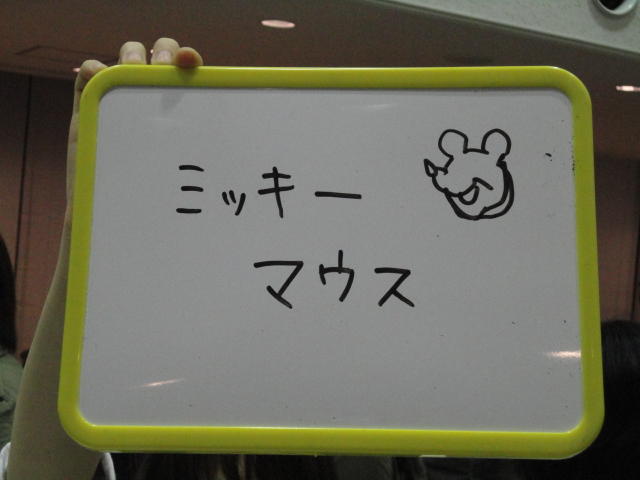 ミッキー
マウス